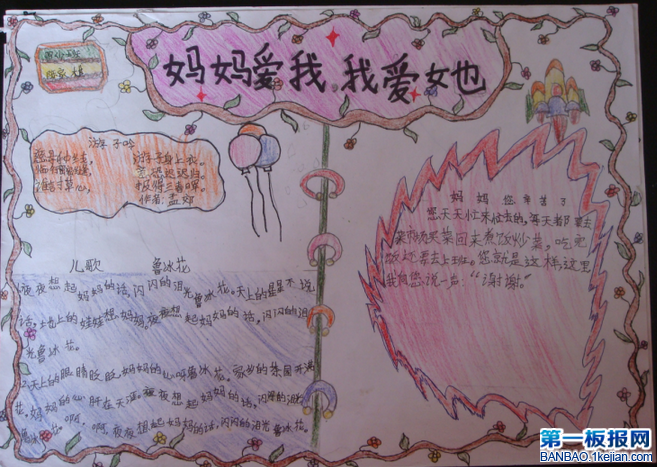 妈妈爱我,我爱她
游子吟
慈母手中线,
游子身上衣。
临行密密缝,
意恐迟迟归。
谁言寸草心,
报得三春晖。
作者:孟郊
妈妈您辛苦了
您天天忙来忙去的,每天都要去
菜市场买菜回来煮饭炒菜,吃完
饭还要去上班。您就是这样,这里
我向您说一声:“谢谢。”
儿歌 鲁冰花
夜夜想起妈妈的话,闪闪的泪光鲁冰花。天上的星星不说
话,地上的娃娃想妈妈。夜夜想起妈妈的话,闪闪的泪
光鲁冰花。
天上的眼睛眨眨,妈妈的心呀鲁冰花。家乡的茶园开满
花,妈妈的心肝在天涯。夜夜想起妈妈的话,闪闪的泪光
鲁冰花。啊,啊,夜夜想起妈妈的话,闪闪的泪光鲁冰花。
第一板报网
BANBAO.1kejian.com